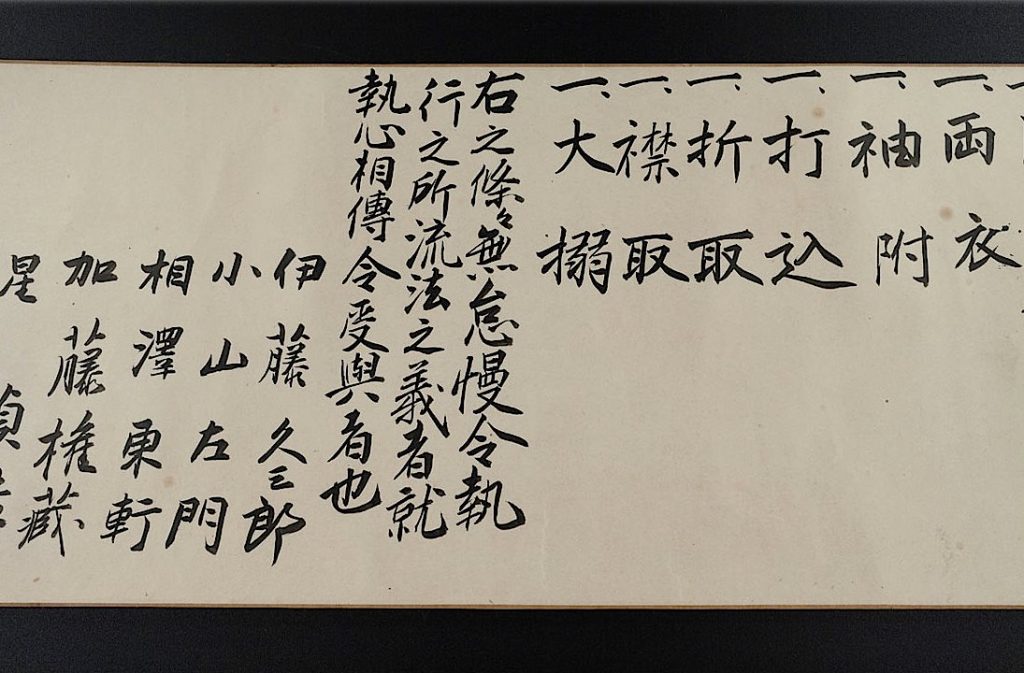 一、両衣
一、袖附
一、打込
一、折取
一、襟取
一、大搦
右之條々無怠慢令執
行之所流法之義者就
執心相傳令受與者也
伊藤久三郎
小山左門
相澤東軒
加藤権蔵
星貞